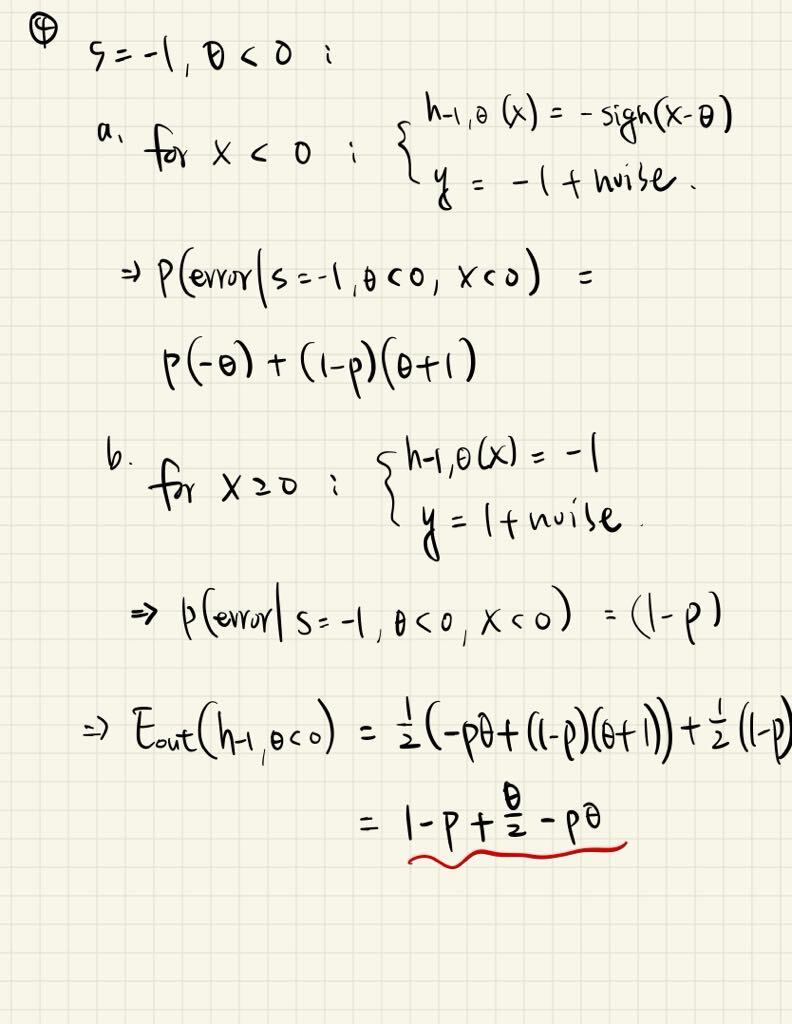 ④
s = -1, θ < 0 :
a. for x < 0 : { h-1,θ (x) = - sign(x-θ)
y = -1 + noise.
⇒ P(error | s = -1, θ < 0, x < 0) =
p(-θ) + (1-p)(θ+1)
b. for x ≥ 0 : { h-1,θ(x) = -1
y = 1 + noise.
⇒ P(error | s = -1, θ < 0, x < 0) = (1-p)
⇒ Eout(h-1, θ<0) = 1/2 (-pθ + (1-p)(θ+1)) + 1/2 (1-p)
= 1 - p + θ/2 - pθ